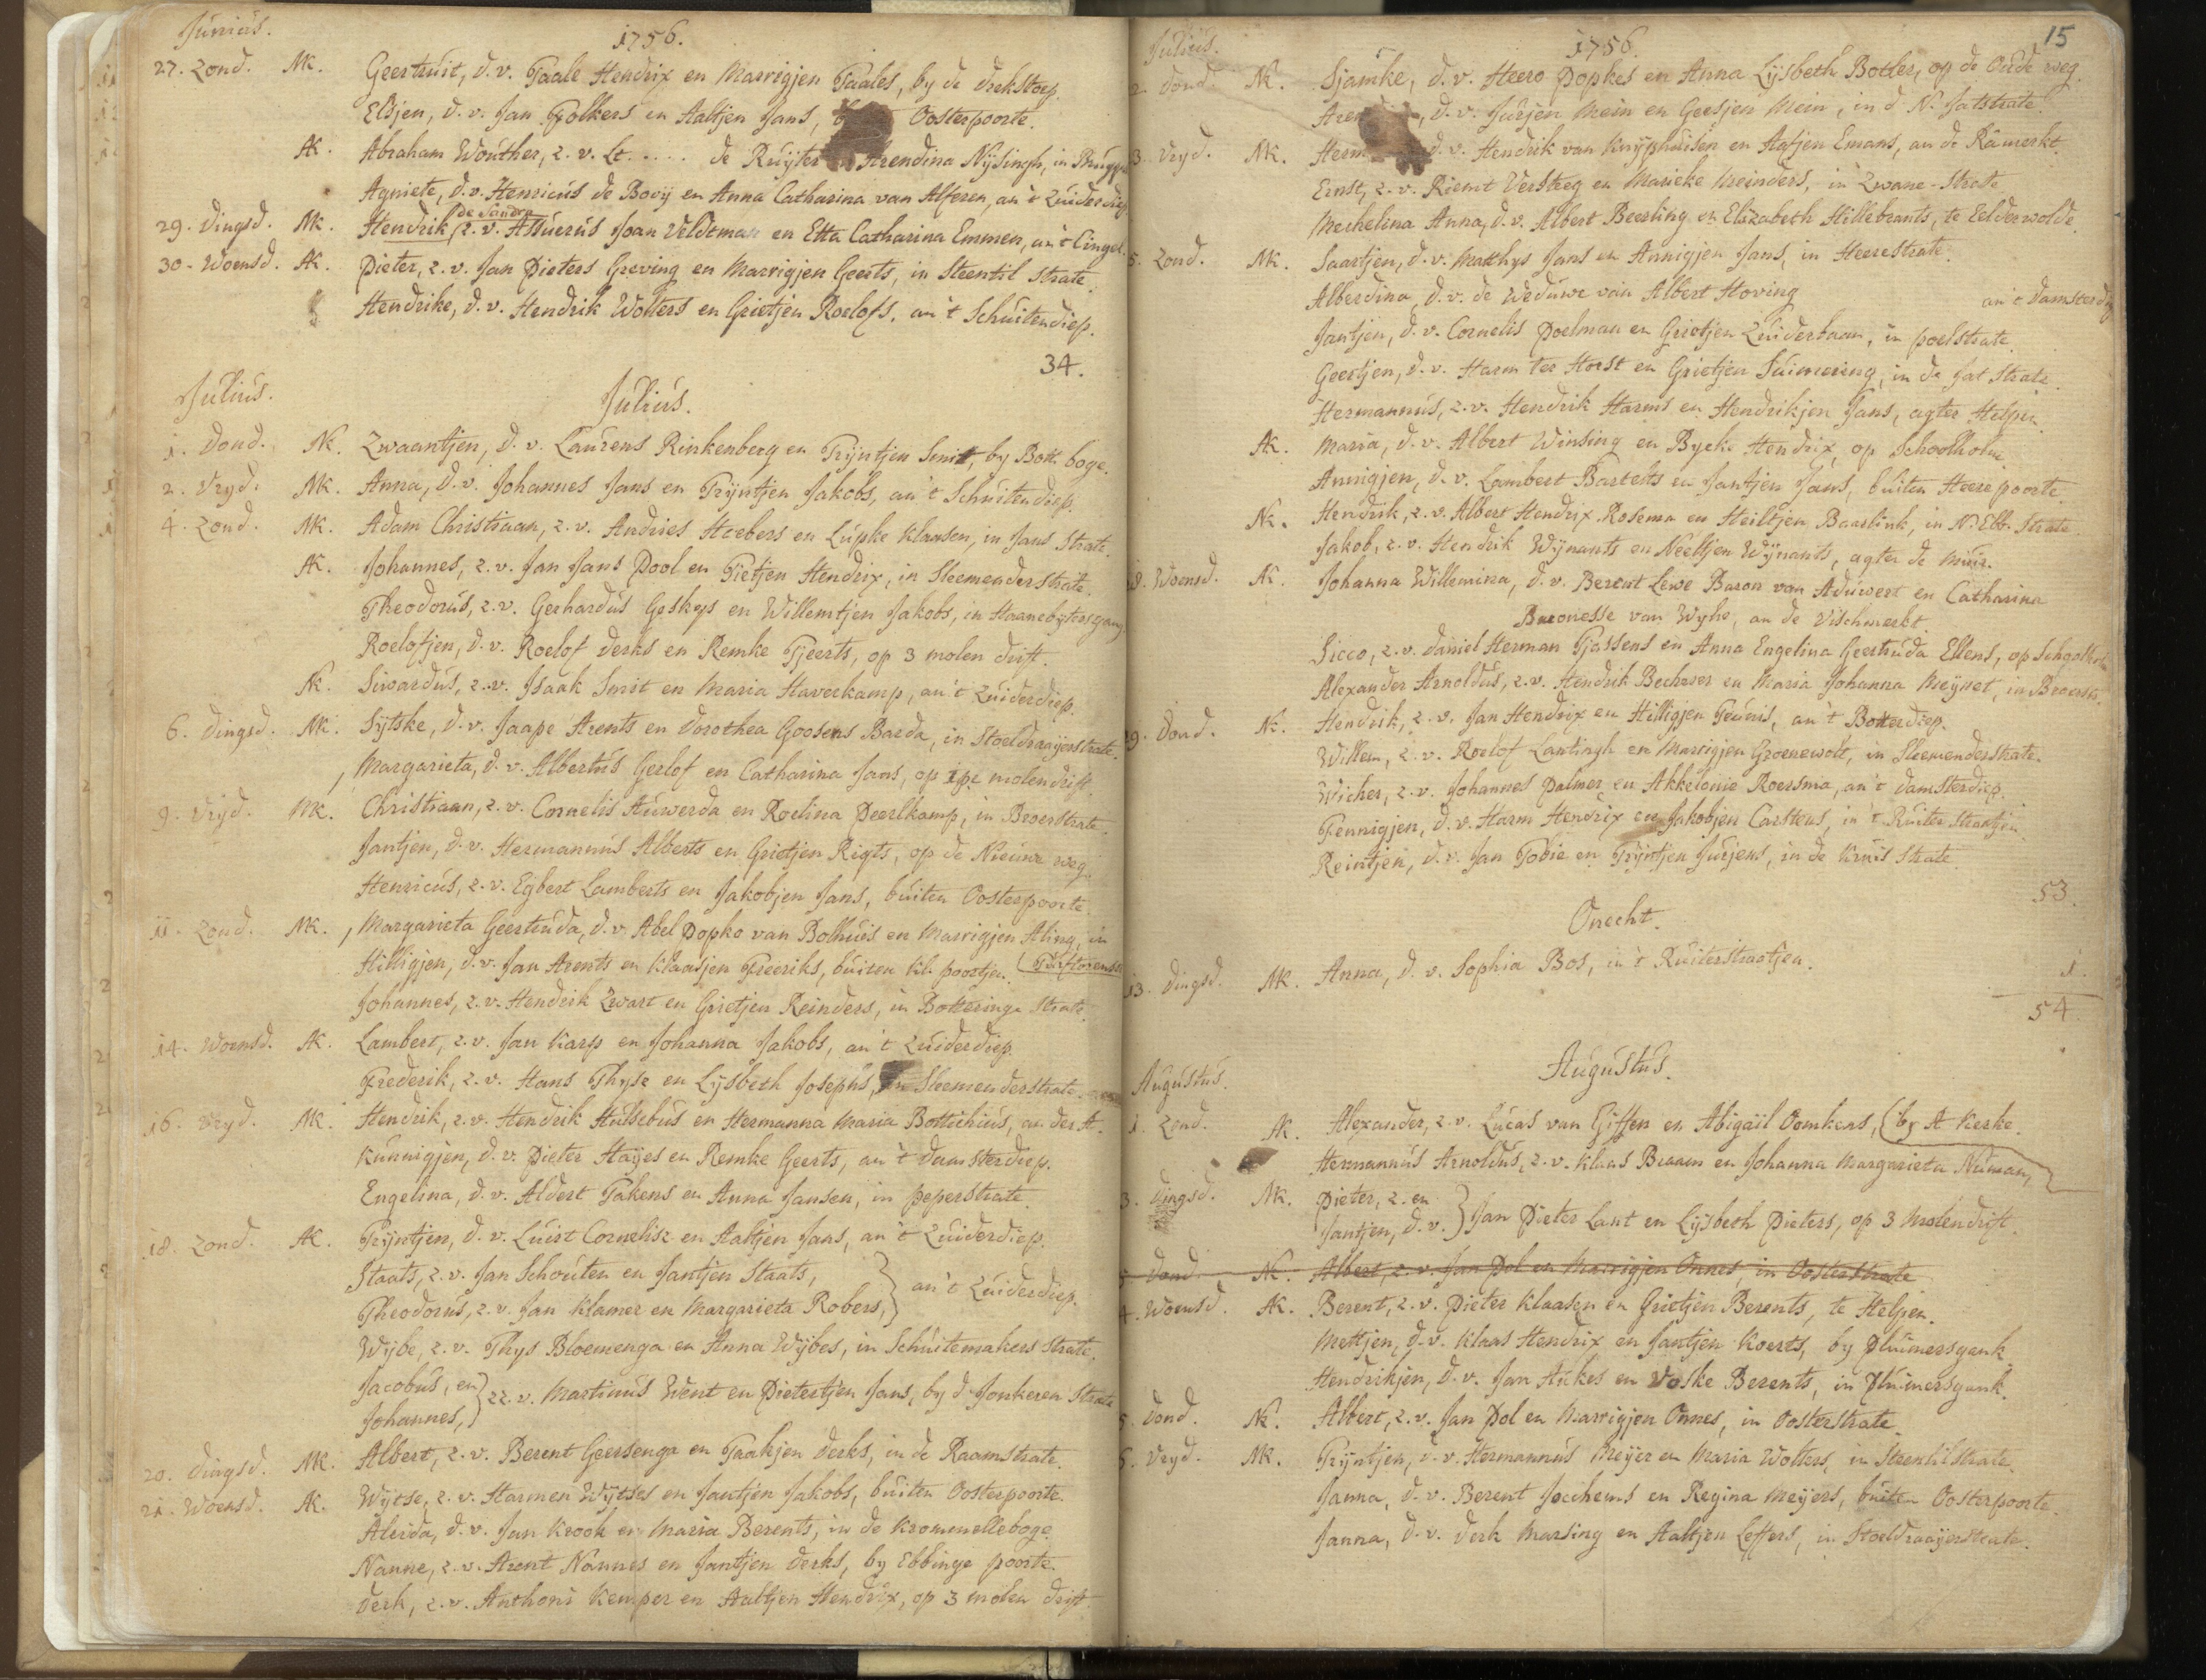 Junius.
1756.
27. Zond. MK. Geertruit, d. v. Taale Hendrix en Marrigjen Taales, by de drekstoep.
Elsjen, d. v. Jan Folkers en Aaltjen Jans, Oosterpoorte.
AK. Abraham Wouther, z. v. Lt. . . . . de Ruyter Arendina Nysingh, in
Agniete, d. v. Henricus de Booy en Anna Catharina van Alferen, an 't Zuiderdiep
de Sandra
29. Dingsd. MK. Hendrik, z. v. Assuerus Joan Veldtman en Etta Catharina Emmen, an 't Cingel.
30. Woensd. AK. Pieter, z. v. Jan Pieters Greving en Marrigjen Geerts, in Steentil strate.
Hendrike, d. v. Hendrik Wolters en Grietjen Roelofs, an 't Schuitendiep.
34.
Julius.
Julius.
1. Dond. NK. Zwaantjen, d. v. Laurens Rinkenberg en Tryntjen Smit, by Bott. boge.
2. Vryd. MK. Anna, d. v. Johannes Jans en Tryntjen Jakobs, an 't Schuitendiep.
4. Zond. MK. Adam Christiaan, z. v. Andries Hoebers en Lupke Klaasen, in Jans Strate.
AK. Johannes, z. v. Jan Jans Pool en Tietjen Hendrix, in Sleemenderstrate.
Theodorus, z. v. Gerhardus Geskys en Willemtjen Jakobs, in Haanebytersgang.
Roelofjen, d. v. Roelof Derks en Remke Tjeerts, op 3 molen drift.
NK. Siwardus, z. v. Isaak Smit en Maria Haverkamp, an 't Zuiderdiep.
6. Dingsd. MK. Sytske, d. v. Jaape Arents en Dorothea Goosens Barda, in Stoeldraayerstrate.
Margarieta, d. v. Albertus Gerlof en Catharina Jans, op 1ste molendrift
9. Vryd. MK. Christiaan, z. v. Cornelis Auwerda en Roelina Peerlkamp, in Broerstrate.
Jantjen, d. v. Hermannus Alberts en Grietjen Rigts, op de Nieuwe weg.
Henricus, z. v. Egbert Lamberts en Jakobjen Jans, buiten Oosterpoorte.
11. Zond. MK. Margarieta Geertruda, d. v. Abel Popko van Bolhuis en Marrigjen Aling, in
Hilligjen, d. v. Jan Arents en Klaasjen Freeriks, buiten kl. poortje. (Turftorenst
Johannes, z. v. Hendrik Zwart en Grietjen Reinders, in Botteringe Strate.
14. Woensd. AK. Lambert, z. v. Jan Karp en Johanna Jakobs, an 't Zuiderdiep.
Frederik, z. v. Hans Thyse en Lysbeth Josephs, in Sleemenderstrate.
16. Vryd. MK. Hendrik, z. v. Hendrik Hulsebus en Hermanna Maria Bottichius, an der A.
Kunnigjen, d. v. Pieter Hayes en Remke Geerts, an 't Damsterdiep.
Engelina, d. v. Aldert Takens en Anna Jansen, in peperstrate.
18. Zond. AK. Tryntjen, d. v. Luirt Cornelisz en Aaltjen Jans, an 't Zuiderdiep.
Staats, z. v. Jan Schouten en Jantjen Staats,
Theodorus, z. v. Jan Klamer en Margarieta Robers, } an 't Zuiderdiep.
Wybe, z. v. Thys Bloemenga en Anna Wybes, in Schuitemakers Strate.
Jacobus, en
Johannes, } zz. v. Martinus Went en Pietertjen Jans, by d' Jonkeren Strate
20. Dingsd. MK. Albert, z. v. Berent Geersenga en Taakjen Derks, in de Raamstrate.
21. Woensd. AK. Wytse, z. v. Harmen Wytses en Jantjen Jakobs, buiten Oosterpoorte.
Aleida, d. v. Jan Krook en Maria Berents, in de Krommelleboge.
Nanne, z. v. Arent Nannes en Jantjen Derks, by Ebbinge poorte.
Derk, z. v. Anthoni Kemper en Aaltjen Hendrix, op 3 molen drift.
15
Julius.
1756.
2. Dond. NK. Sjamke, d. v. Heero Popkes en Anna Lysbeth Botter, op de Oude weg.
d. v. Jurjen Mein en Geesjen Mein, in d' N. Jatstrate.
3. Vryd. MK. Herm d. v. Hendrik van Knyphuisen en Aafjen Emans, an de Ramerkt.
Ernst, z. v. Riemt Versteeg en Marieke Meinders, in Zwane-Strate.
Mechelina Anna, d. v. Albert Beerling en Elizabeth Hillebrants, te Eelderwolde.
5. Zond. MK. Saartjen, d. v. Matthys Jans en Annigjen Jans, in Heerestrate.
Alberdina, d. v. de Weduwe van Albert Hoving an 't Damsterdiep
Jantjen, d. v. Cornelis Poelman en Grietjen Zuiderbaan, in poelstrate.
Geertjen, d. v. Harm ter Horst en Grietjen Suimering, in de Jat Strate.
Hermannus, z. v. Hendrik Harms en Hendrikjen Jans, agter Helpen
AK. Maria, d. v. Albert Winsing en Bycke Hendrix, op Schoolholm.
Annigjen, d. v. Lambert Bartelts en Jantjen Jans, buiten Heere poorte.
NK. Hendrik, z. v. Albert Hendrix Rosema en Heiltjen Baarlink, in N. Ebb. Strate
Jakob, z. v. Hendrik Wynants en Neeltjen Wynants, agter de Muir.
8. Woensd. AK. Johanna Willemina, d. v. Berent Lewe Baron van Aduwert en Catharina
Baronesse van Wyhe, an de Vischmerkt.
Sicco, z. v. Daniel Herman Tjassens en Anna Engelina Geertruda Ellens, op Schoolholm
Alexander Arnoldus, z. v. Hendrik Bechwer en Maria Johanna Meynet, in Broerstr.
9. Dond. NK. Hendrik, z. v. Jan Hendrix en Hilligjen Teunis, an 't Botterdiep.
Willem, z. v. Roelof Lantingh en Marrigjen Groenewolt, in Sleemenderstrate.
Wicher, z. v. Johannes Palmer en Akkelonie Roersma, an 't Damsterdiep.
Fennigjen, d. v. Harm Hendrix en Jakobjen Carstens, in 't Ruiter Straatjen.
Reintjen, d. v. Jan Tobie en Tryntjen Jurjens, in de Kruis Strate.
53.
Onecht.
13. Dingsd. MK. Anna, d. v. Sophia Bos, in 't Ruiterstraatjen.
1.
54.
Augustus.
Augustus.
1. Zond. AK. Alexander, z. v. Lucas van Giffen en Abigail Oomkens, (by A kerke.
Hermannus Arnoldus, z. v. Klaas Braam en Johanna Margarieta Numan,
3. Dingsd. MK. Pieter, z. en
Jantjen, d. v. } Jan Pieter Lant en Lysbeth Pieters, op 3 molendrift.
5 Dond. NK. Albert, z. v. Jan Pol en Marrigjen Onnes, in Oosterstrate
4. Woensd. AK. Berent, z. v. Pieter Klaasen en Grietjen Berents, te Helpen.
Mettjen, d. v. Klaas Hendrix en Jantjen Koerts, by Pluimersgank.
Hendrikjen, d. v. Jan Aukes en Voske Berents, in Pluimersgank.
5. Dond. NK. Albert, z. v. Jan Pol en Marrigjen Onnes, in Oosterstrate.
6. Vryd. MK. Tryntjen, d. v. Hermannus Meyer en Maria Wolters, in Steentilstrate.
Janna, d. v. Berent Jochems en Regina Meyers, buiten Oosterpoorte.
Janna, d. v. Derk Marsing en Aaltjen Leffers, in Stoeldraayerstrate.